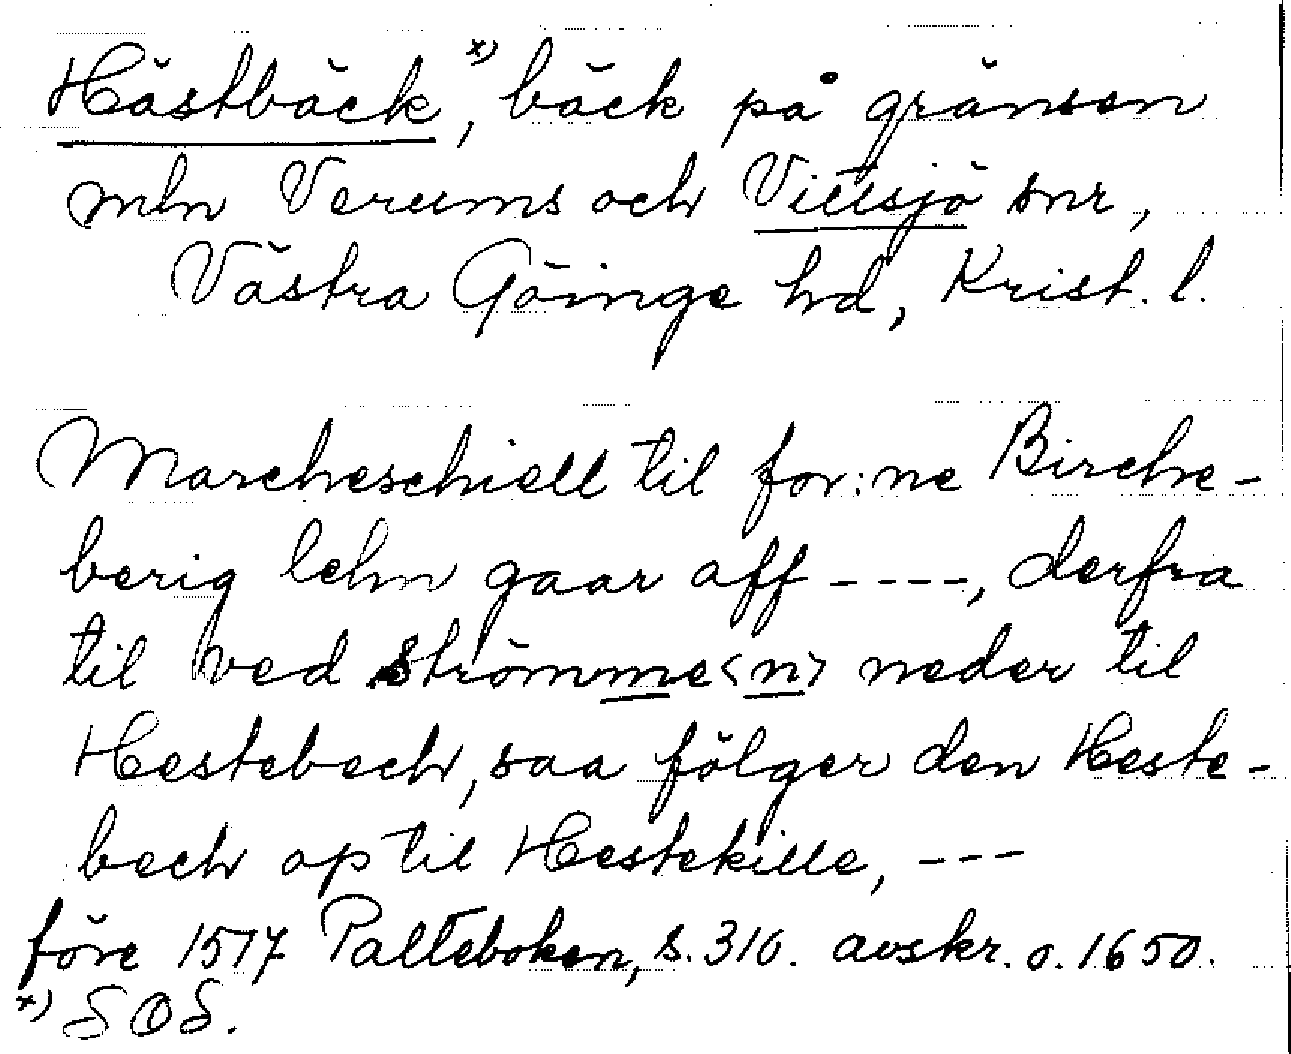 Hästbäck,ˣ⁾ bäck på gränsen
mln Verums och Vittsjö snr,
Västra Göinge hd, Krist. l.
Marcheschiell til for:ne Birche-
berig lehn gaar aff ----, derfra
til ved strömme<n> neder til
Hestebech, saa fölger den Heste-
bech op til Hestekille, ---
före 1517 Palteboken, s. 310. avskr. o. 1650.
ˣ⁾ SOS.